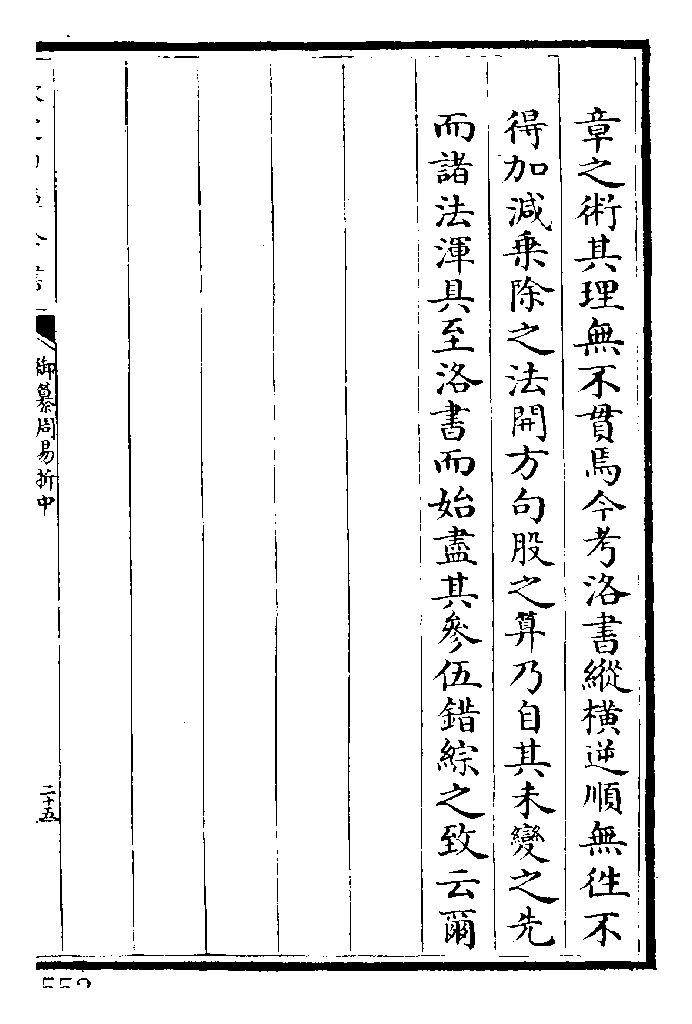 章之術其理無不貫焉今考洛書縱橫逆順無徃不
得加減乗除之法開方句股之算乃自其未變之先
而諸法渾具至洛書而始盡其參伍錯綜之致云爾
御纂周易折中
二十五
552